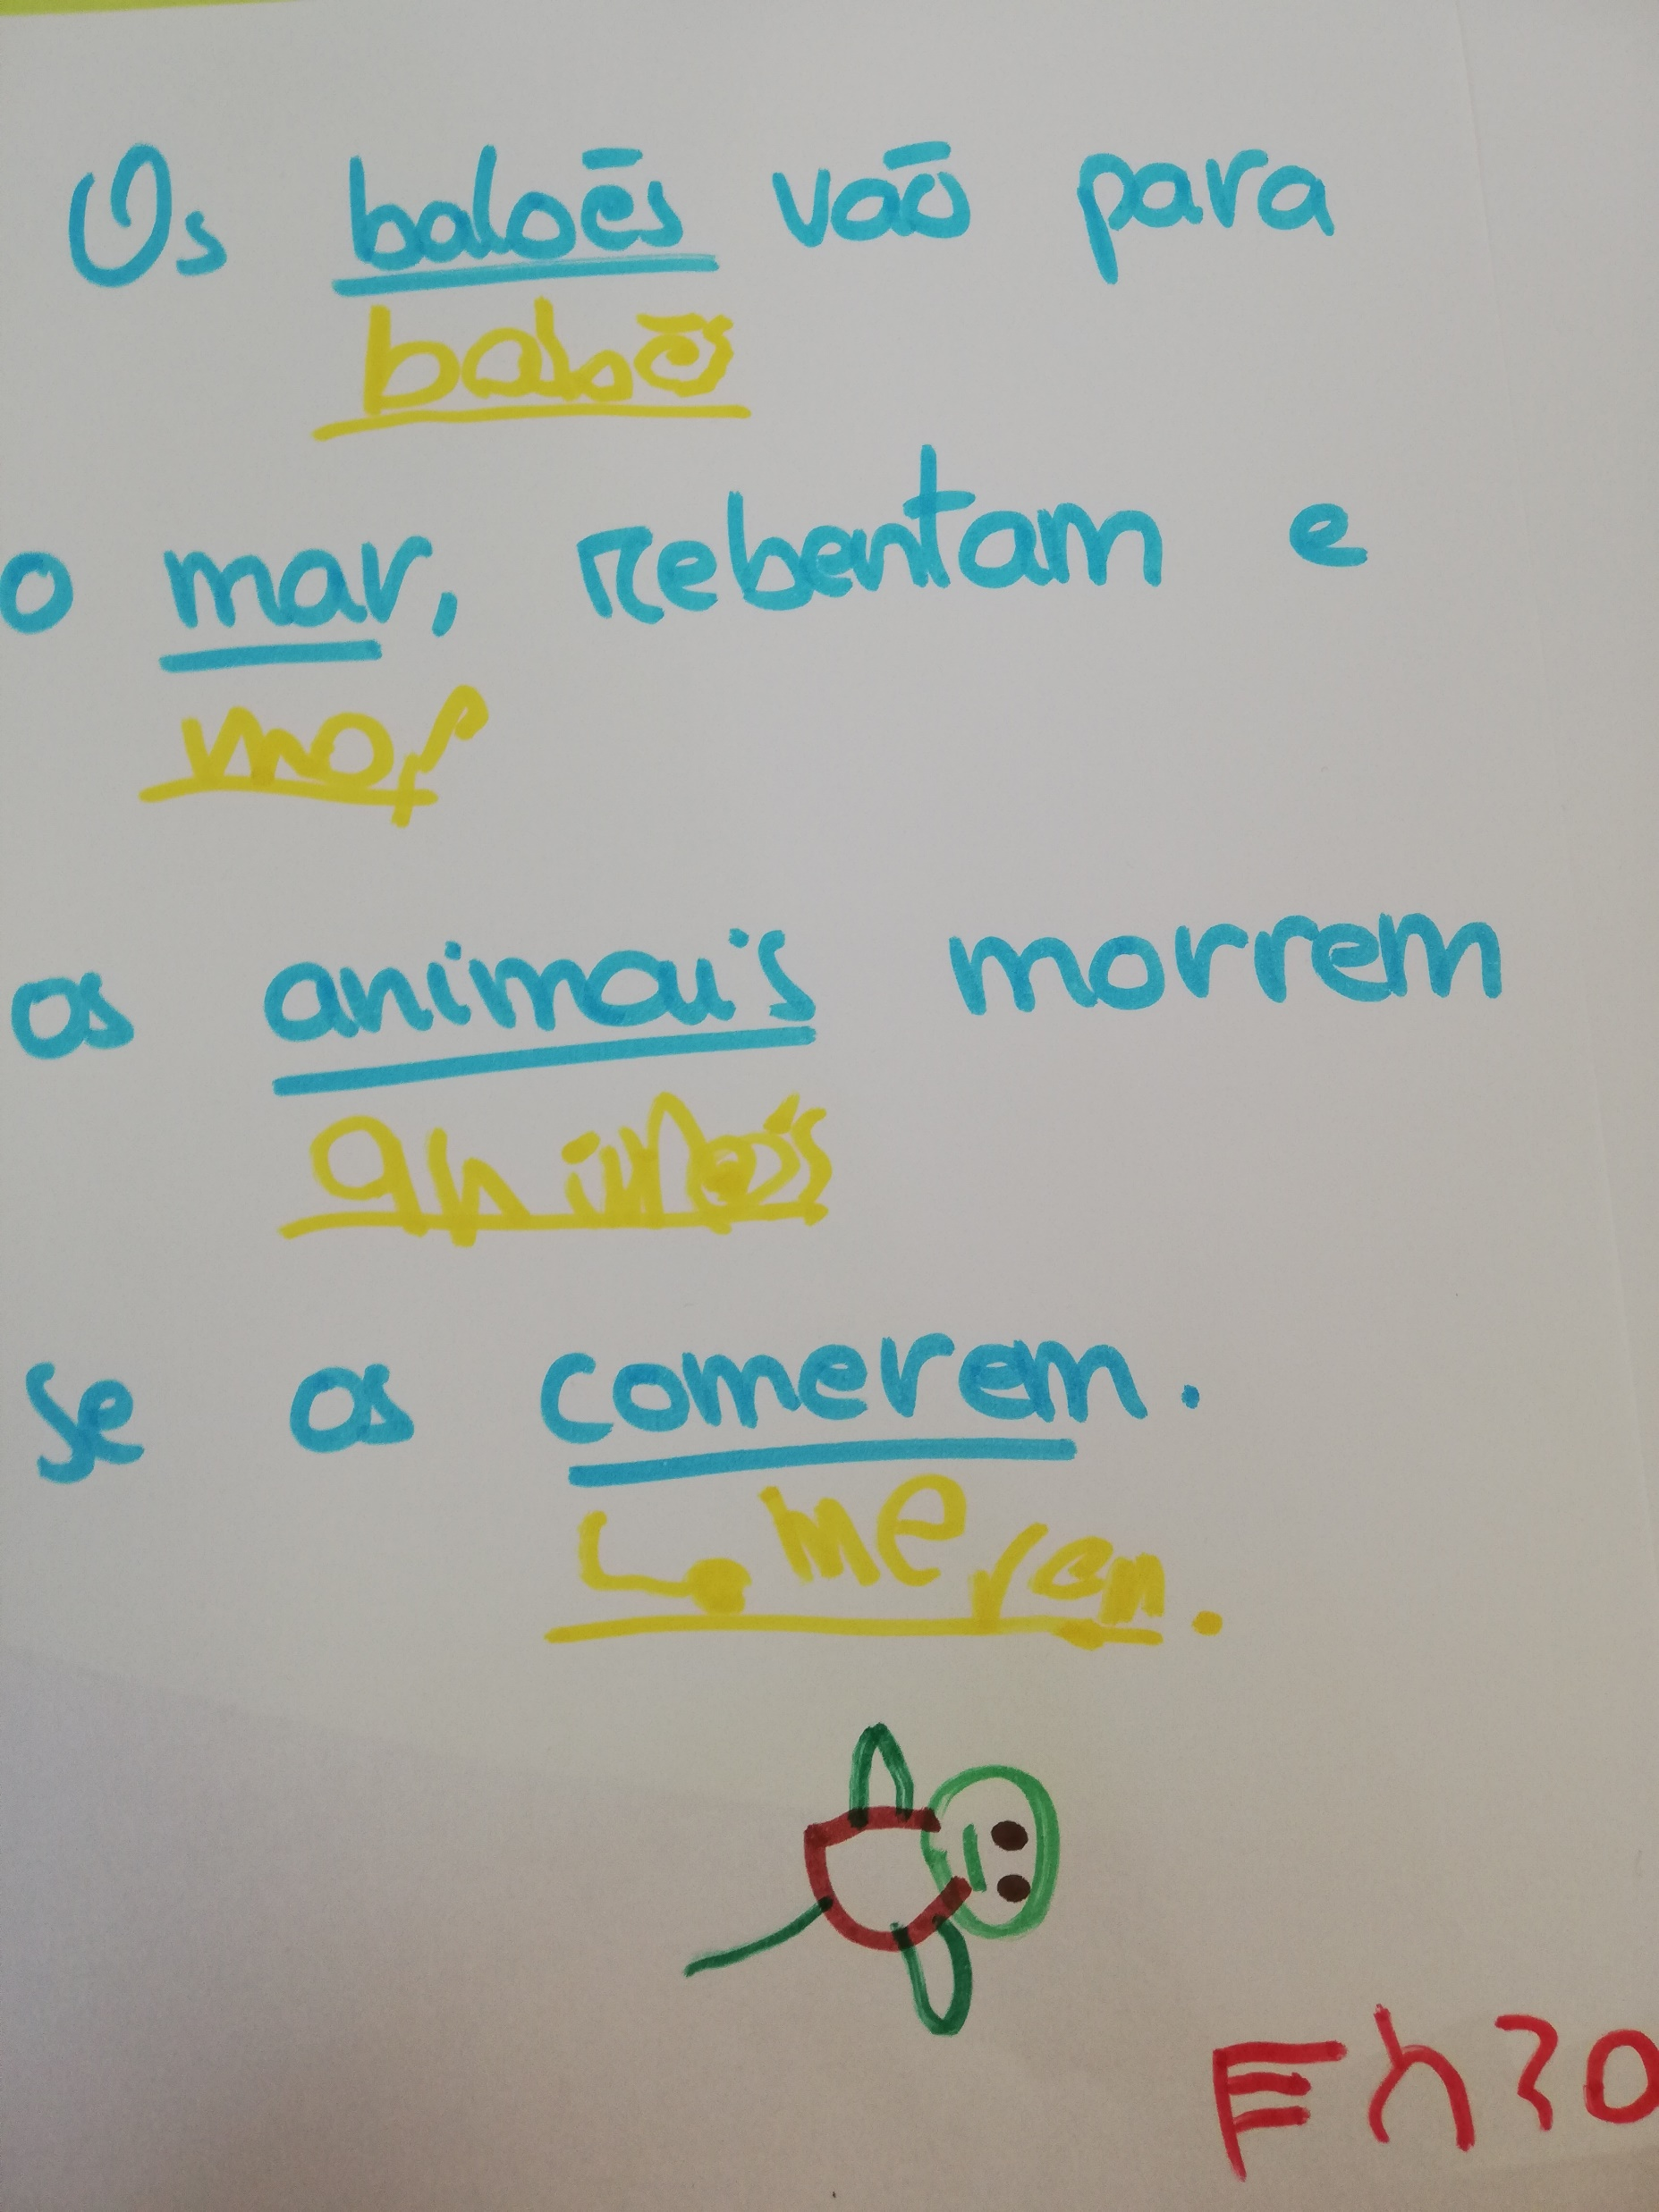 Os baloēs vaō para
baloē
o mar, rebentam e
mar
os animais morrem
animais
se os comerem.
comeren.
Enzo